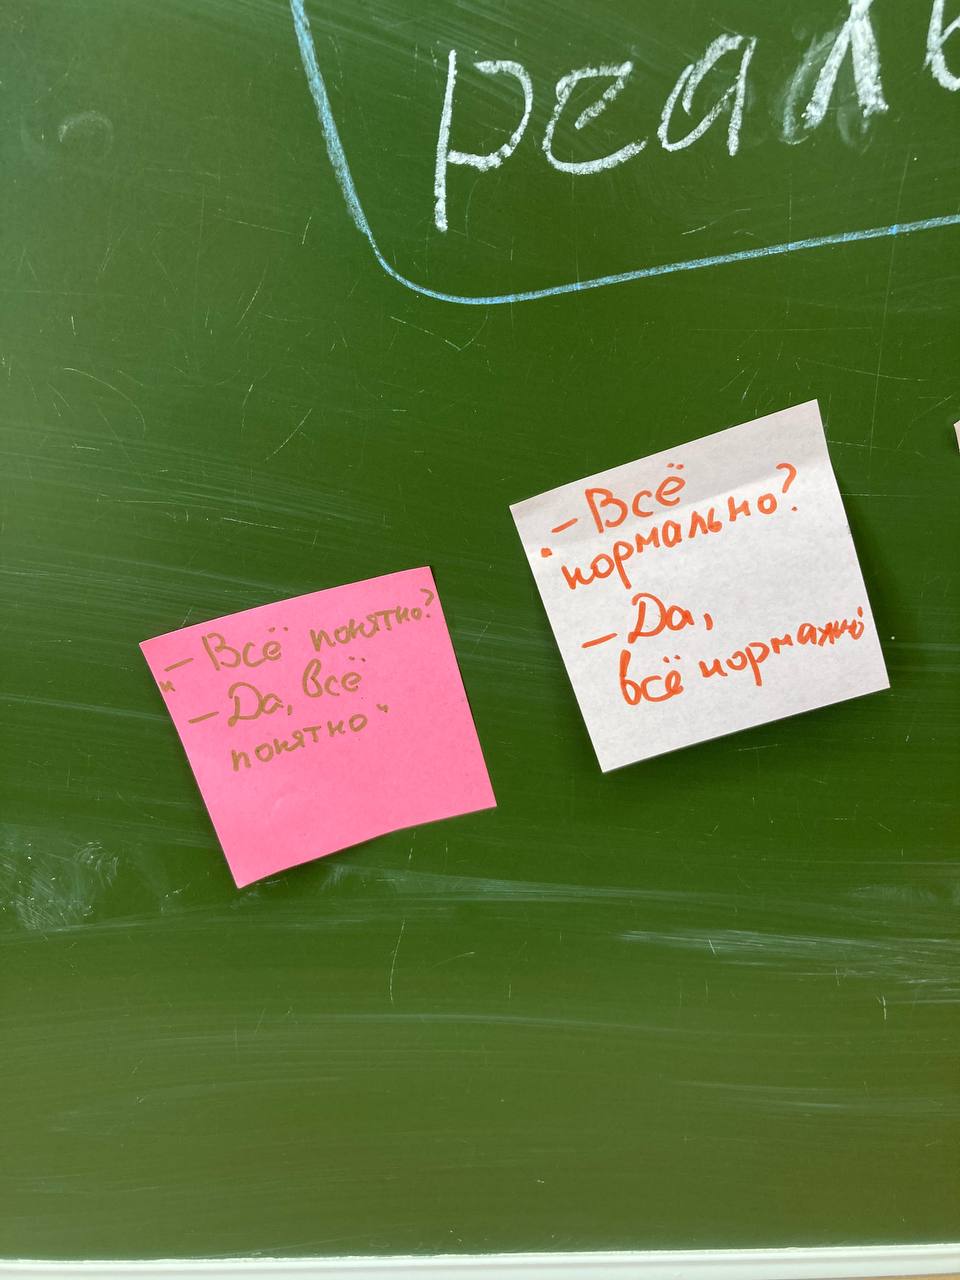 реаль
- Всё понятно?
"- Да, всё
понятно"
- Всё
"нормально?
- Да,
всё нормально"